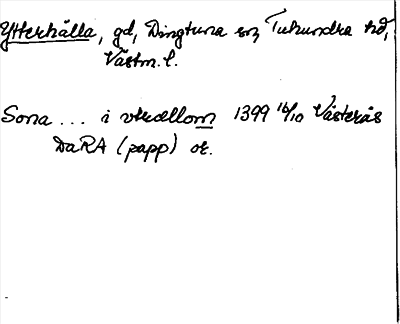 Ytterhälla, gd, Dingtuna sn, Tuhundra hd,
Västm. l.
Sona ... i vtrællom 1399 16/10 Västerås
DaRA (papp) or.